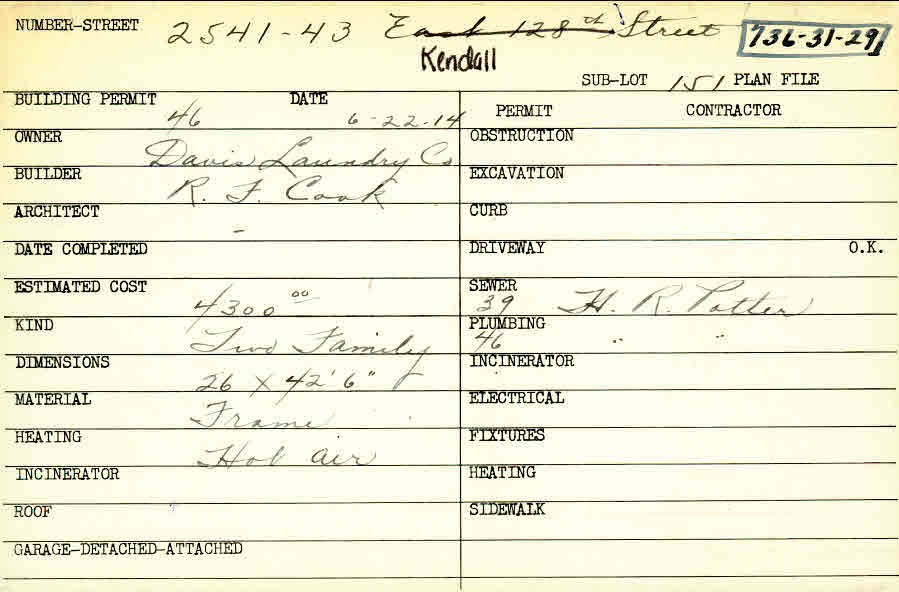 NUMBER-STREET 2541-43 East 128th Street 736-31-29
Kendall
SUB-LOT 151 PLAN FILE
BUILDING PERMIT 46 DATE 6-22-14
PERMIT CONTRACTOR
OWNER Davis Laundry Co
OBSTRUCTION
BUILDER R. F. Cook
EXCAVATION
ARCHITECT -
CURB
DATE COMPLETED
DRIVEWAY O.K.
ESTIMATED COST 4300 00
SEWER 39 H. R. Potter
KIND Two Family
PLUMBING 46 " "
DIMENSIONS 26 X 42' 6"
INCINERATOR
MATERIAL Frame
ELECTRICAL
HEATING Hot air
FIXTURES
INCINERATOR
HEATING
ROOF
SIDEWALK
GARAGE-DETACHED-ATTACHED